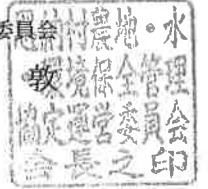 委員会
敦
村農地・水
環境保全管理
協定運営委員会
会長之印